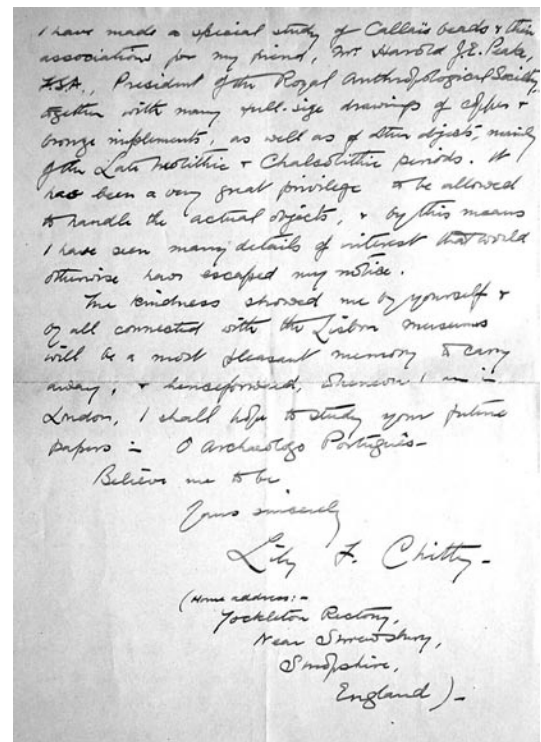 I have made a special study of Callaïs beads & their
associations for my friend, Mr Harold J.E. Peake,
F.S.A., President of the Royal Anthropological Society,
together with many full-size drawings of copper &
bronze implements, as well as of other objects, mainly
of the Late Neolithic & Chalcolithic periods. It
has been a very great privilege to be allowed
to handle the actual objects, & by this means
I have seen many details of interest that would
otherwise have escaped my notice.
The kindness showed me by yourself &
by all connected with the Lisbon museums
will be a most pleasant memory to carry
away; & henceforward, whenever I am in
London, I shall hope to study your future
papers in O Archeologo Português –
Believe me to be
Yours sincerely
Lily F. Chitty –
(Home address: –
Yockleton Rectory,
Near Shrewsbury,
Shropshire,
England) –